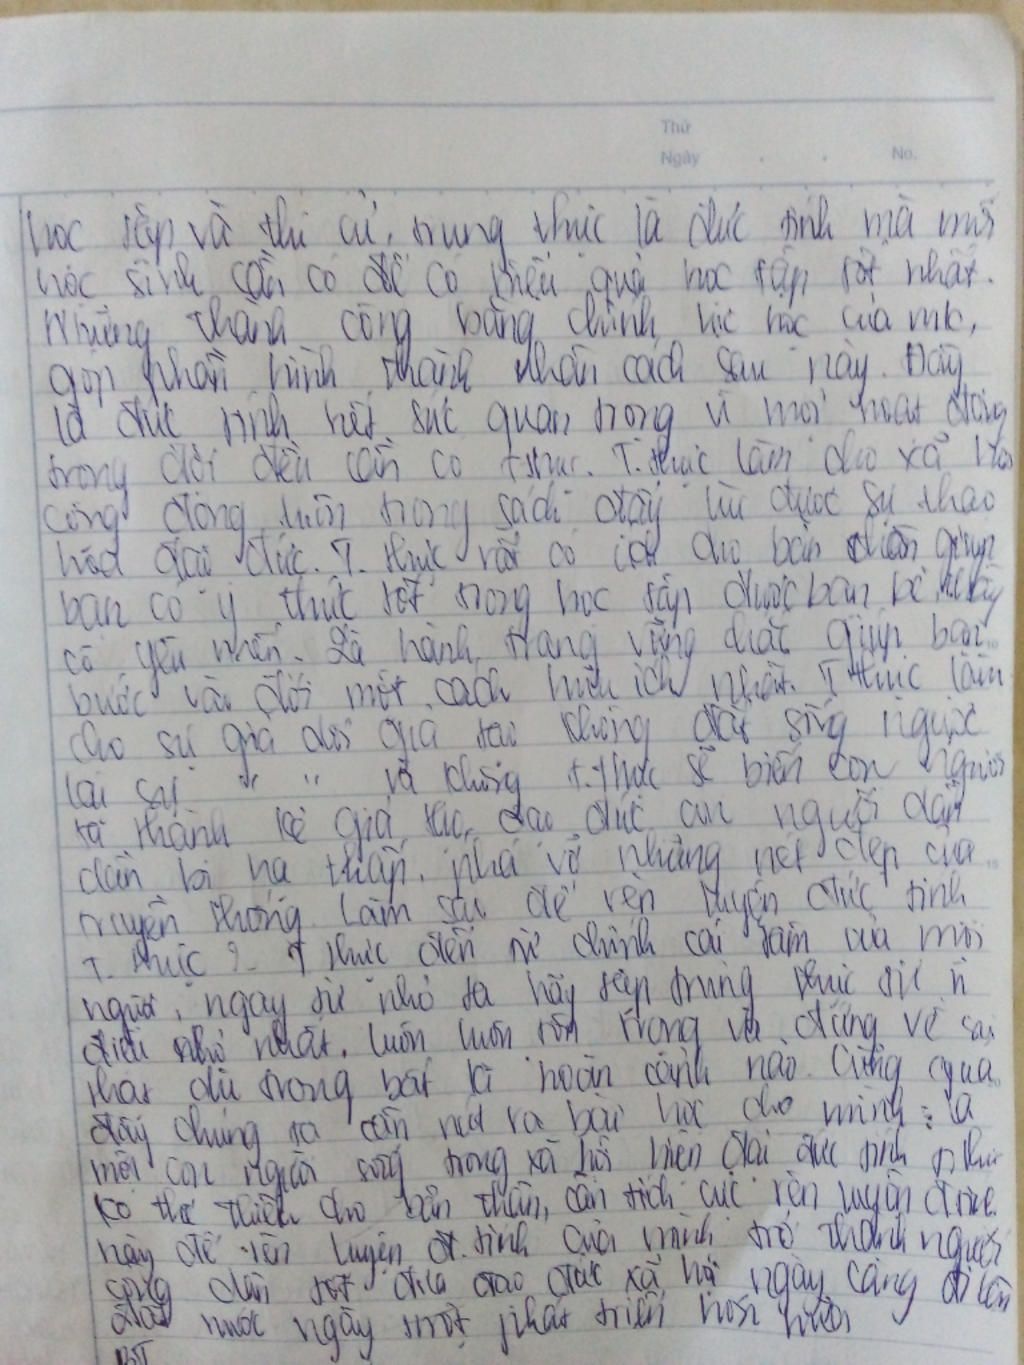 Thứ
Ngày . . No.
học tập và thi cử, trung thực là đức tính mà mỗi
học sinh cần có để có hiệu quả học tập tốt nhất.
Những thành công bằng chính lực học của mk,
góp phần hình thành nhân cách sau này. Đây
là đức tính hết sức quan trọng vì mọi hoạt động
trong đời đều cần có t.thực. T.thực làm cho xã hội
công đồng luôn trong sách đẩy lùi được sự tha
hóa đạo đức. T. thực rất có ích cho bản thân giúp
bạn có ý thức tốt trong học tập được bạn bè thầy
cô yêu mến. Là hành trang vững chắc giúp bạn
bước vào đời một cách hữu ích nhất. T thực làm
cho sự giả dối giả tạo không đất sống ngược
lại sự " " và không t.thực sẽ biến con người
ta thành kẻ giả tạo, đạo đức con người dần
dần bị hạ thấp, phá vỡ những nét đẹp của
truyền thống. Làm sao để rèn luyện đức tính
T. thực ?. T thực đến từ chính cái tâm của mỗi
người, ngay từ nhỏ ta hãy tập trung thực từ n
điều nhỏ nhất, luôn luôn tôn trọng và đứng về sự
thật dù trong bất kì hoàn cảnh nào. Cũng qua
đây chúng ta cần rút ra bài học cho mình: là
mỗi con người sống trong xã hội hiện đại đức tính
ko thể thiếu cho bản thân, cần tích cực rèn luyện
này để rèn luyện đ.tính của mình trở thành người
công dân tốt đưa đạo đức xã hội ngày càng đi lên
đất nước ngày một phát triển hơn